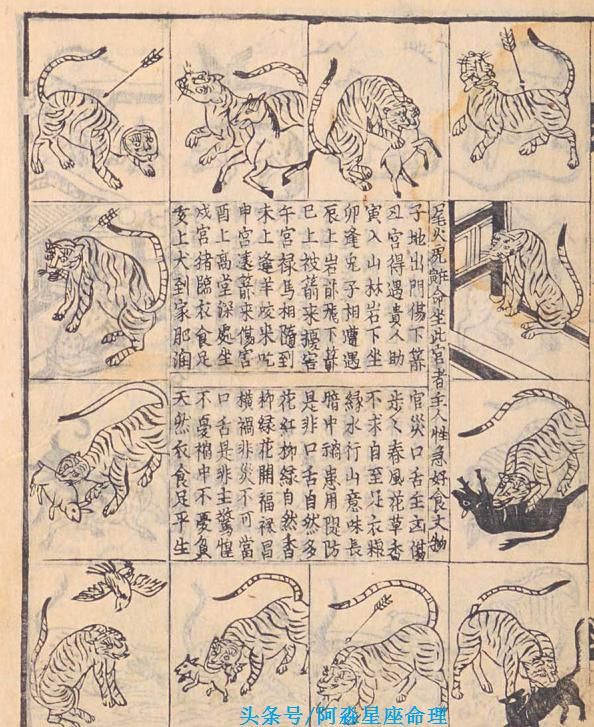 尾火虎離命坐此宮者主人性急好食文物
子地出門傷下箭
丑宮得遇貴人助
寅入山林岩下坐
卯逢兎子相遭遇
辰上岩卧飛下箭
巳上被箭來擾害
午宮祿馬相隨到
未上逢羊咬來吃
申宮遠箭來傷害
酉上高堂深處坐
戌宮猪臨衣食足
亥上犬到家肥潤
官災口舌主
步々春風花草香
不求自至足衣粮
緣水行山意味長
暗中禍患用隄防
是非口舌自然多
花紅柳綠自然香
柳綠花開福祿昌
橫禍非災不可當
口舌是非主驚惶
不憂中不憂負
天然衣食足平生
头条号/阿淼星座命理